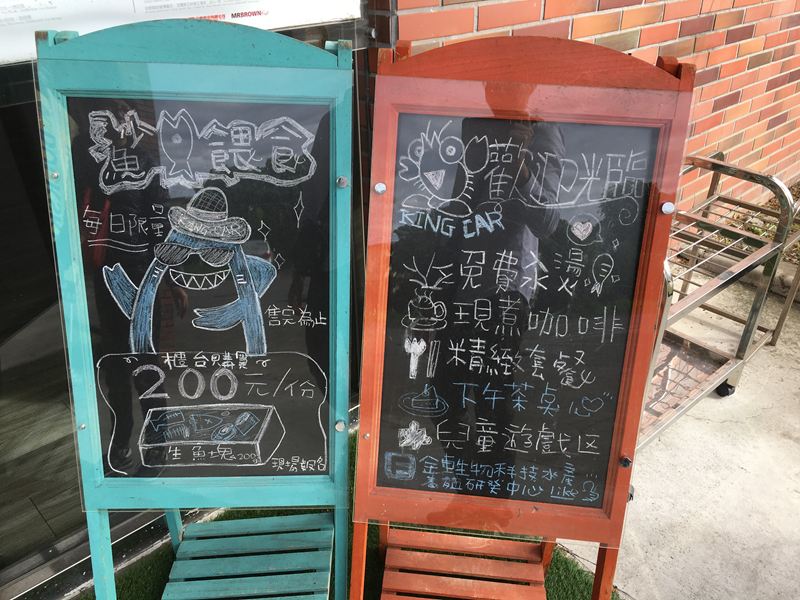 MRBROWN
鯊魚餵食
每日限量
KING CAR
售完為止
櫃台購買
200元/份
生魚塊200g
現場報名
歡迎光臨
KING CAR
免費泳湯
現煮咖啡
精緻套餐
下午茶点心
兒童遊戲区
金車生物科技水產
養殖研發中心 Like